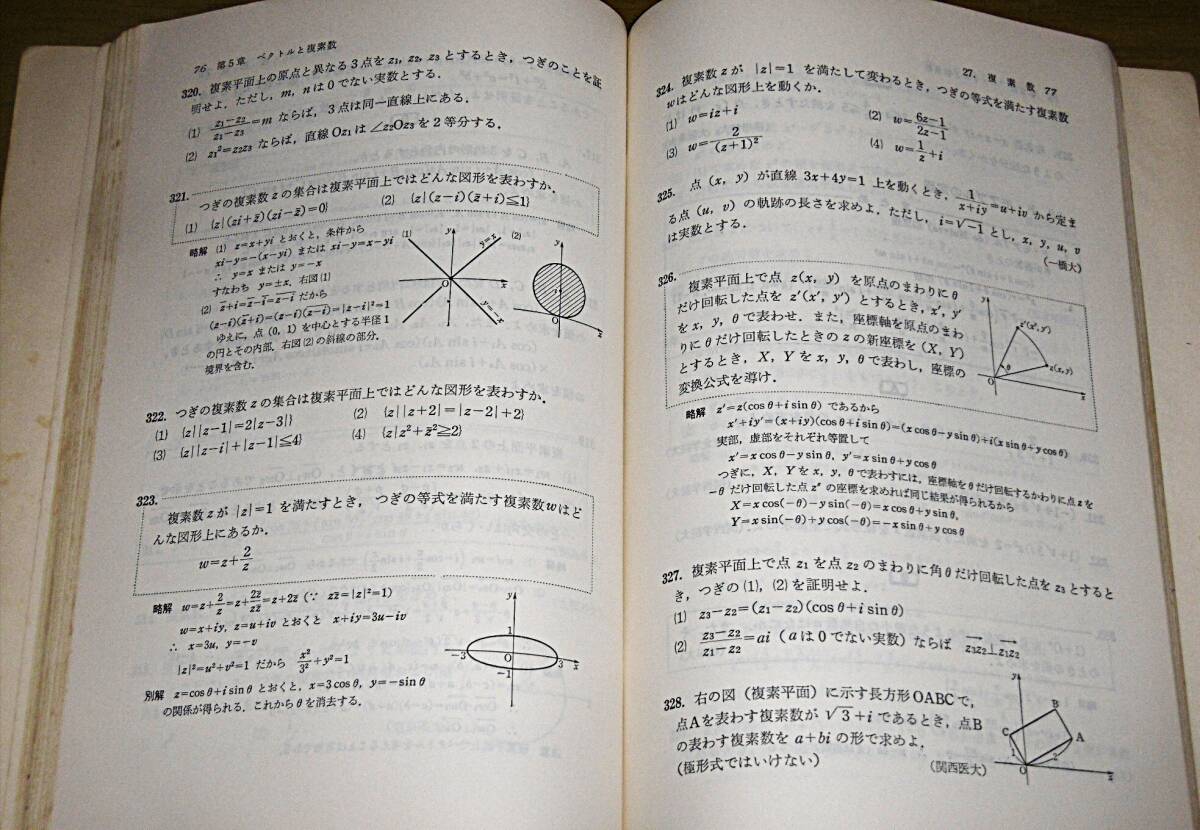 76 第5章 ベクトルと複素数
320. 複素平面上の原点と異なる3点を z₁, z₂, z₃ とするとき, つぎのことを証
明せよ. ただし, m, n は0でない実数とする.
(1) (z₁−z₂)/(z₁−z₃)=m ならば, 3点は同一直線上にある.
(2) z₁²=z₂z₃ ならば, 直線 Oz₁ は ∠z₂Oz₃ を2等分する.
321. つぎの複素数 z の集合は複素平面上ではどんな図形を表わすか.
(1) {z|(zi+z̄)(zi−z̄)=0} (2) {z|(z−i)(z̄+i)≦1}
略解 (1) z=x+yi とおくと, 条件から
xi−y=−(x−yi) または xi−y=x−yi
∴ y=x または y=−x
すなわち y=±x, 右図(1)
(2) z̄+i=z̄−ī=z−i だから
(z−i)(z̄+i)=(z−i)(z−i)=|z−i|²=1
ゆえに, 点 (0, 1) を中心とする半径1
の円とその内部. 右図(2)の斜線の部分.
境界を含む.
(1) y y=x O x y=−x
(2) y O x
322. つぎの複素数 z の集合は複素平面上ではどんな図形を表わすか.
(1) {z||z−1|=2|z−3|} (2) {z||z+2|=|z−2|+2}
(3) {z||z−i|+|z−1|≦4} (4) {z|z²+z̄²≧2}
323. 複素数 z が |z|=1 を満たすとき, つぎの等式を満たす複素数 w はど
んな図形上にあるか.
w=z+2/z
略解 w=z+2/z=z+2z̄/zz̄=z+2z̄ (∵ zz̄=|z|²=1)
w=x+iy, z=u+iv とおくと x+iy=3u−iv
∴ x=3u, y=−v
|z|²=u²+v²=1 だから x²/3²+y²=1
別解 z=cosθ+i sinθ とおくと, x=3cosθ, y=−sinθ
の関係が得られる. これから θ を消去する.
y 1 −3 O 3 x −1
27. 複素数 77
324. 複素数 z が |z|=1 を満たして変わるとき, つぎの等式を満たす複素数
w はどんな図形上を動くか.
(1) w=iz+i (2) w=(6z−1)/(2z−1)
(3) w=2/(z+1)² (4) w=1/z+i
325. 点 (x, y) が直線 3x+4y=1 上を動くとき, 1/(x+iy)=u+iv から定ま
る点 (u, v) の軌跡の長さを求めよ. ただし, i=√−1 とし, x, y, u, v
は実数とする. (一橋大)
326. 複素平面上で点 z(x, y) を原点のまわりに θ
だけ回転した点を z′(x′, y′) とするとき, x′, y′
を x, y, θ で表わせ. また, 座標軸を原点のまわ
りに θ だけ回転したときの z の新座標を (X, Y)
とするとき, X, Y を x, y, θ で表わし, 座標の
変換公式を導け.
y z′(x′, y′) θ z(x, y) O x
略解 z′=z(cosθ+i sinθ) であるから
x′+iy′=(x+iy)(cosθ+i sinθ)=(x cosθ−y sinθ)+i(x sinθ+y cosθ)
実部, 虚部をそれぞれ等置して
x′=x cosθ−y sinθ, y′=x sinθ+y cosθ
つぎに, X, Y を x, y, θ で表わすには, 座標軸を θ だけ回転するかわりに点 z を
−θ だけ回転した点 z″ の座標を求めれば同じ結果が得られるから
X=x cos(−θ)−y sin(−θ)=x cosθ+y sinθ,
Y=x sin(−θ)+y cos(−θ)=−x sinθ+y cosθ
327. 複素平面上で点 z₁ を点 z₂ のまわりに角 θ だけ回転した点を z₃ とすると
き, つぎの (1), (2) を証明せよ.
(1) z₃−z₂=(z₁−z₂)(cosθ+i sinθ)
(2) (z₃−z₂)/(z₁−z₂)=ai (a は0でない実数) ならば z₃z₂⊥z₁z₂
328. 右の図 (複素平面) に示す長方形 OABC で,
点Aを表わす複素数が √3+i であるとき, 点B
の表わす複素数を a+bi の形で求めよ.
(極形式ではいけない) (関西医大)
y B C A 1 2 O x